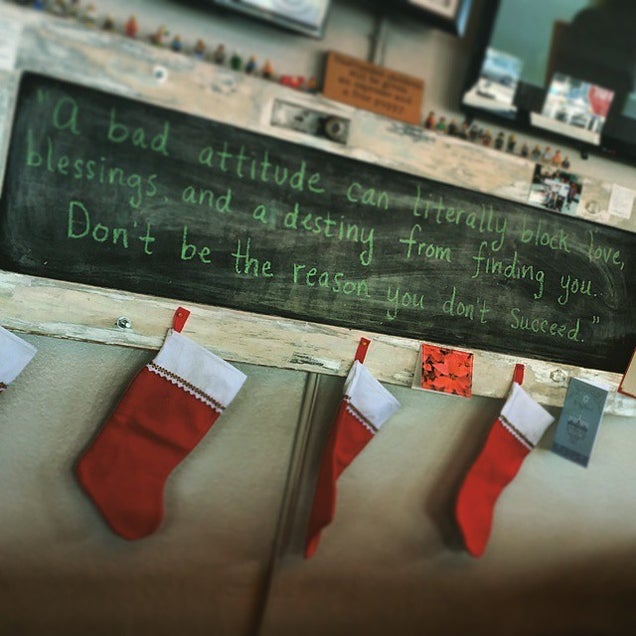 "A bad attitude can literally block love,
blessings, and a destiny from finding you..
Don't be the reason you don't succeed."